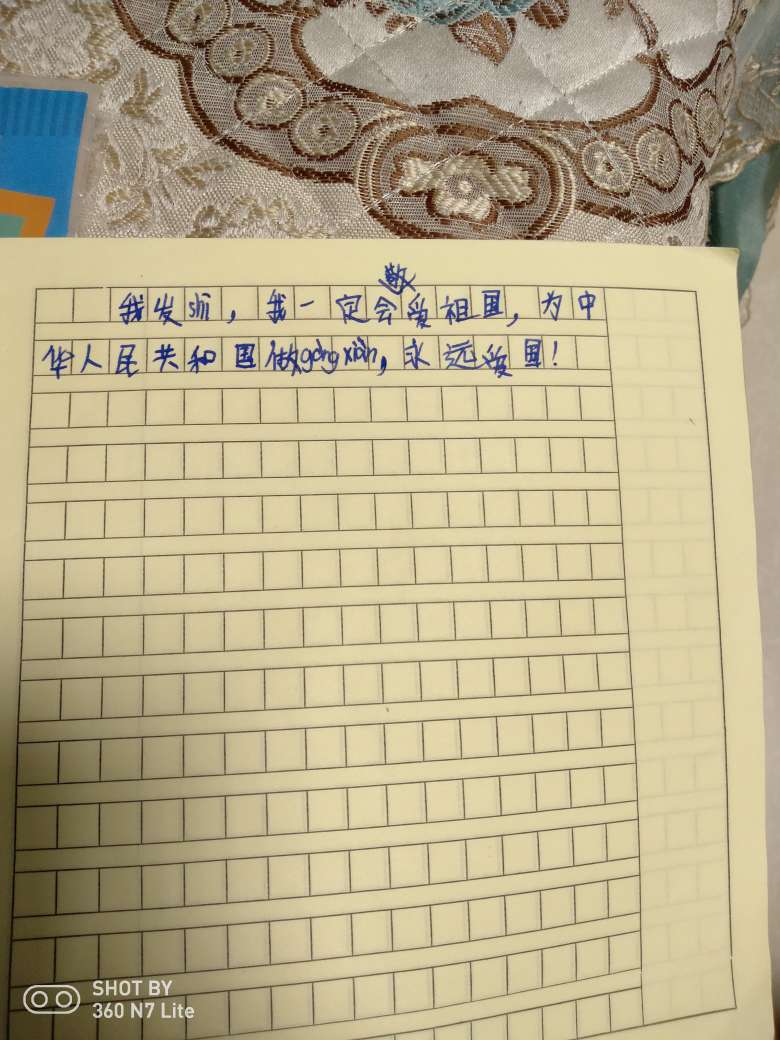 我发shì，我一定会敬爱祖国，为中
华人民共和国做gòngxiàn，永远爱国！
SHOT BY
360 N7 Lite